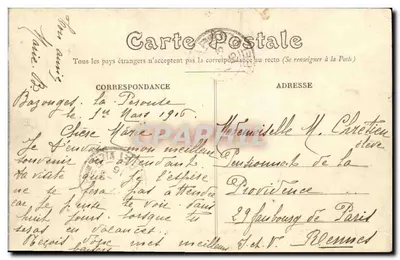 Ton amie
Marie. B
Carte Postale
Tous les pays étrangers n'acceptent pas la correspondance au recto (Se renseigner à la Poste)
CORRESPONDANCE
Bazouges. la Pérouse
le 1er Mars 1906
Chère Marie
Je t'envoie mon meilleur
souvenir en attendant
ta visite que je l'espère
ne se fera pas attendre
car je pense te voir dans
huit jours lorsque tu
seras en vacances.
Reçois mes meilleurs
baisers
ADRESSE
Mademoiselle M. Chrétien
élève
Pensionnat de la
Providence
29 faubourg de Paris
I. et. V. Rennes